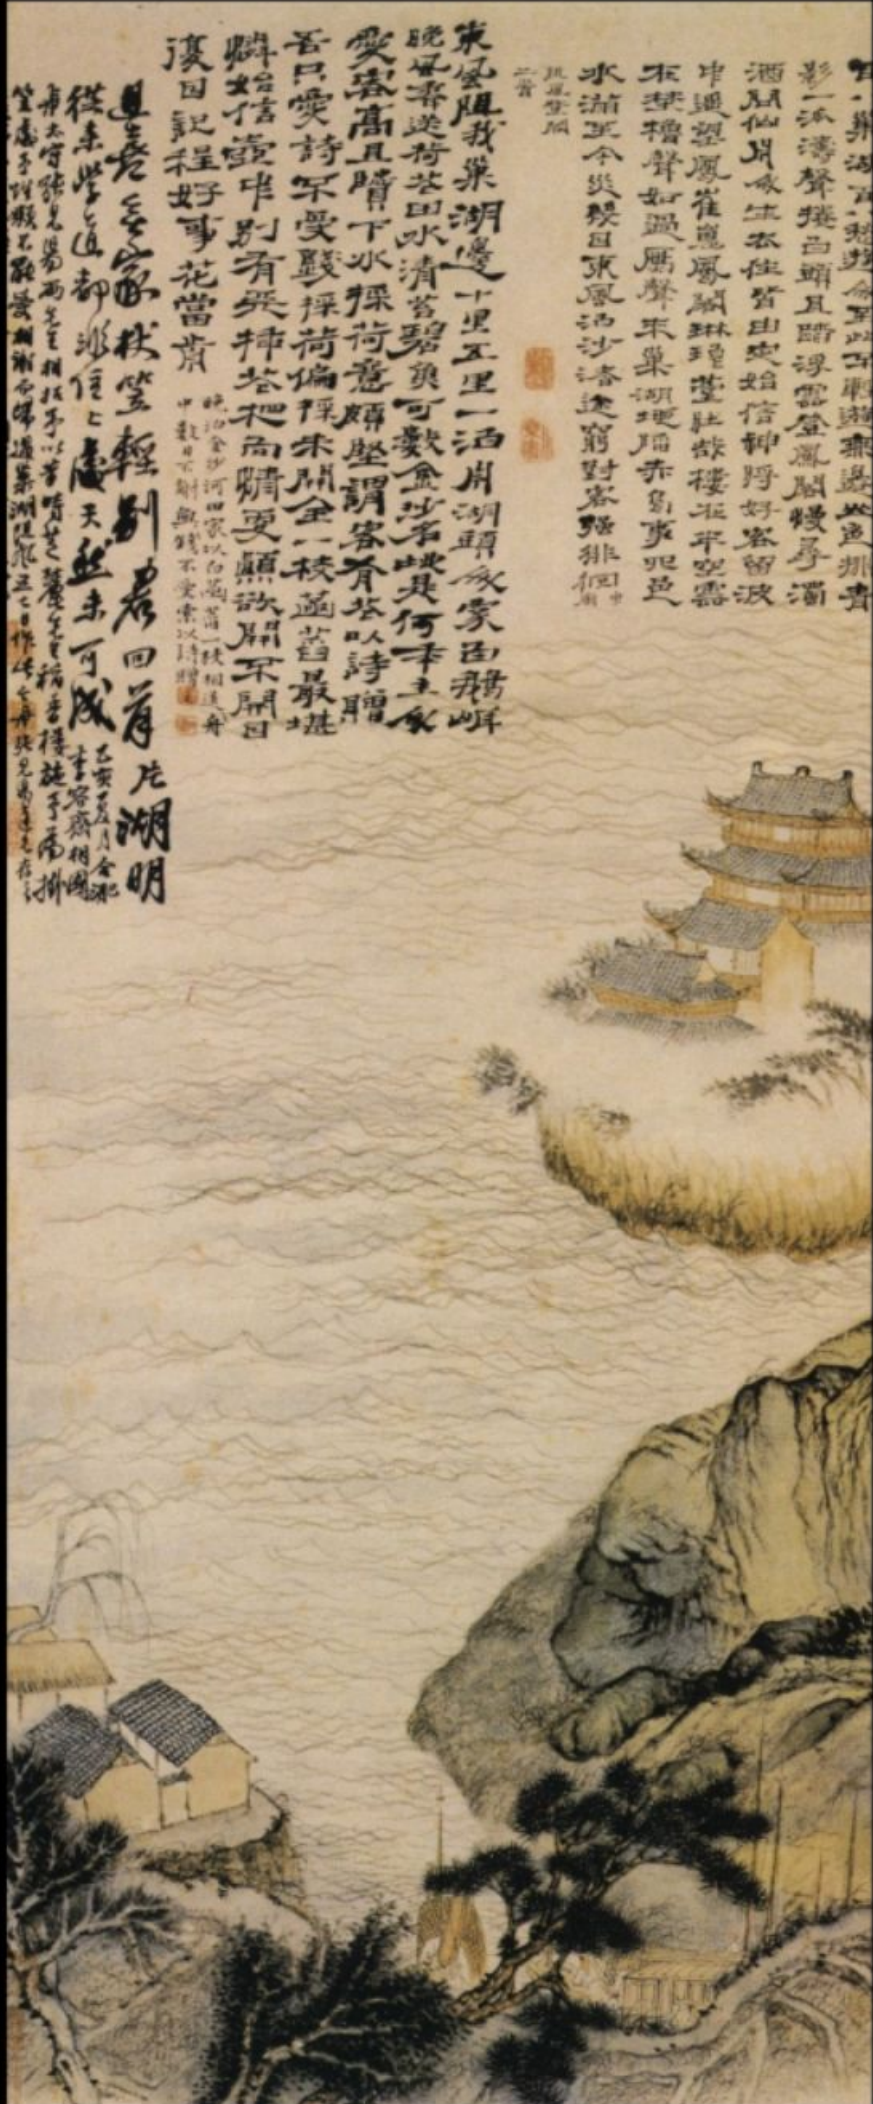 影一派濤聲捲白頭且踏浮雲登鳳閣慢尋濁
酒問仙舟人生去住皆由定始信神將好客留波
中遥望鳳崔嵬鳳閣琳瑯臺壯哉樓在半空雲
在楚櫓聲如過鴈聲來巢湖地陷赤烏事四邑
水滿至今災幾日東風泊沙渚途窮對客强徘徊中廟
阻風登閣
二首
東風阻我巢湖邊十里五里一泊舟湖頭人家白鵝岸
晚風齊送荷花田水清苔碧魚可數金沙名此是何年主人
愛客高且賢下水採荷意頗堅謂客有花以詩贈
吾只愛詩不愛錢採荷偏採未開全一枝菡萏最堪
憐始信壺中別有天插花把酒情更顛欲開不開日
復日記程好事花當前
晚泊金沙河田家以白菡萏一枝相送舟
中數日不謝無錢不受索以詩贈
且喜無家杖笠輕別君回首片湖明
從來學道都非住住處天然未可成
乙亥夏月合肥
李容齋相國
與太守張見陽兩先生相招予以昔時芝麓先生稻香樓施予為掛
笠處予性懶不能受相謝而歸過巢湖阻風五七日作此